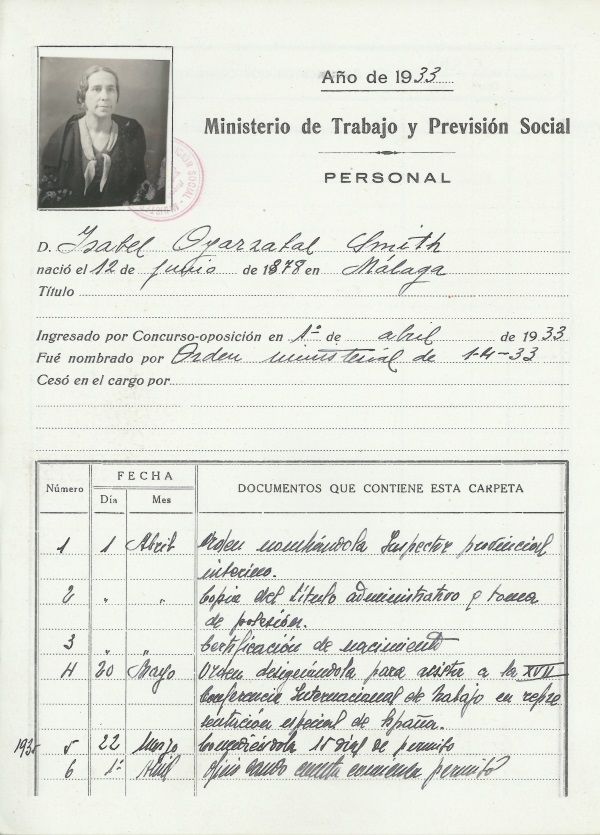 Año de 1933
Ministerio de Trabajo y Previsión Social
PERSONAL
D. Isabel Oyarzabal Smith
nació el 12 de junio de 1878 en Málaga
Título
Ingresado por Concurso-oposición en 1º de abril de 1933
Fué nombrado por Orden ministerial de 1-4-33
Cesó en el cargo por
Número
FECHA
Día Mes
DOCUMENTOS QUE CONTIENE ESTA CARPETA
1 1 Abril Orden nombrándola Inspector provincial
interino.
2 " " Copia del título administrativo y toma
de posesión.
3 " " Certificación de nacimiento
4 20 Mayo Orden designándola para asistir a la XVII
Conferencia Internacional de Trabajo en repre
sentación especial de España.
1935 5 22 Marzo Concediéndola 15 días de permiso
6 1º Abril dando cuenta comienza permiso